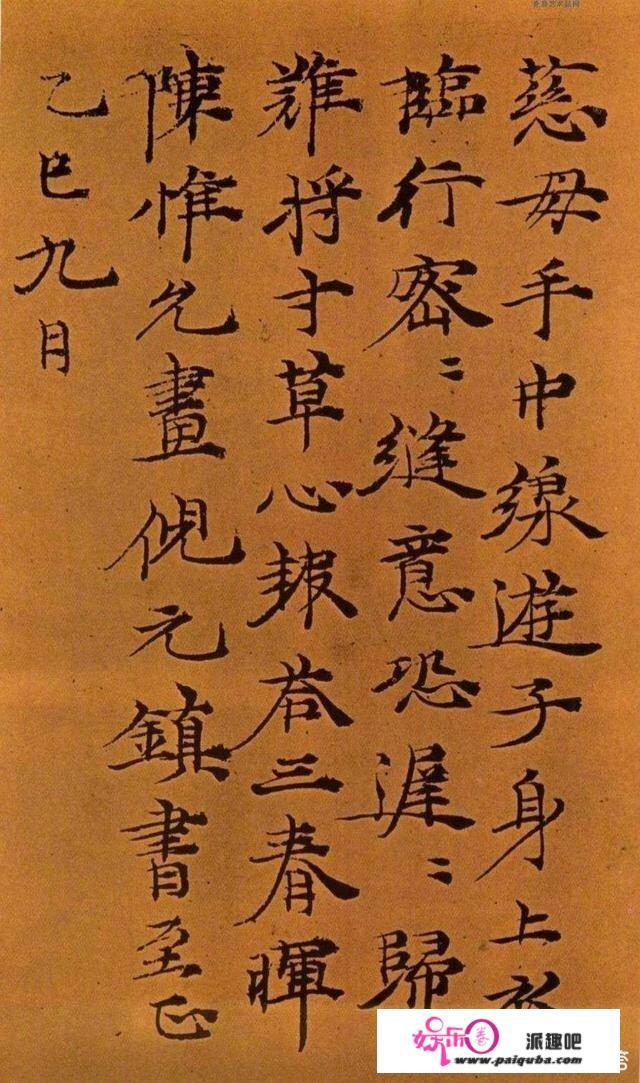 慈母手中線遊子身上衣
臨行密〻縫意恐遲〻歸
難將寸草心報荅三春暉
陳惟允畫倪元鎮書至正
乙巳九日
娱乐圈 派趣吧
www.paiquba.com